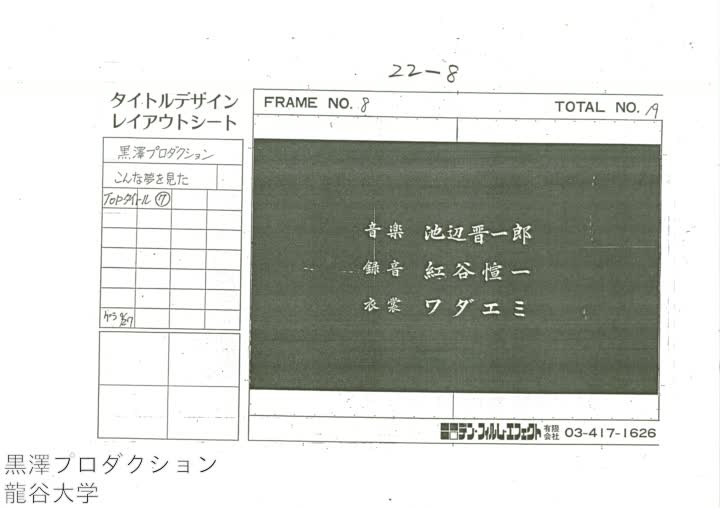 22-8
タイトルデザイン
レイアウトシート
FRAME NO. 8
TOTAL NO. 19
黒澤プロダクション
こんな夢を見た
TOPタイトル ⑦
音楽 池辺晋一郎
録音 紅谷愃一
衣裳 ワダエミ
デン・フィルム・エフェクト 有限会社 03-417-1626
黒澤プロダクション
龍谷大学